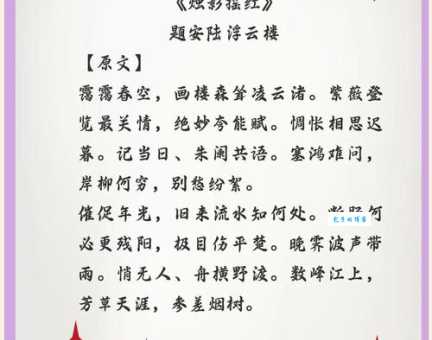 《烛影摇红》
题安陆浮云楼
【原文】
霭霭春空，画楼森耸凌云渚。紫薇登
览最关情，绝妙夸能赋。惆怅相思迟
暮。记当日、朱阑共语。塞鸿难问，
岸柳何穷，别愁纷絮。
催促年光，旧来流水知何处。断肠何
必更残阳，极目伤平楚。晚霁波声带
雨。悄无人、舟横野渡。数峰江上，
芳草天涯，参差烟树。